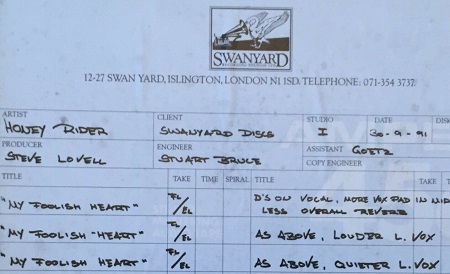 SWANYARD
12-27 SWAN YARD, ISLINGTON, LONDON N1 1SD. TELEPHONE: 071-354 3737
ARTIST CLIENT STUDIO DATE DISC
HONEY RIDER SWANYARD DISCS I 30-9-91
PRODUCER ENGINEER ASSISTANT GOETZ
STEVE LOVELL STUART BRUCE COPY ENGINEER
TITLE TAKE TIME SPIRAL TITLE TAKE
"MY FOOLISH HEART" FL/EL D'S ON VOCAL, MORE VOX PAD IN MID
LESS OVERALL REVERB
"MY FOOLISH HEART" FL/EL AS ABOVE, LOUDER L. VOX
"MY FOOLISH HEART" FL/EL AS ABOVE, QUIETER L. VOX